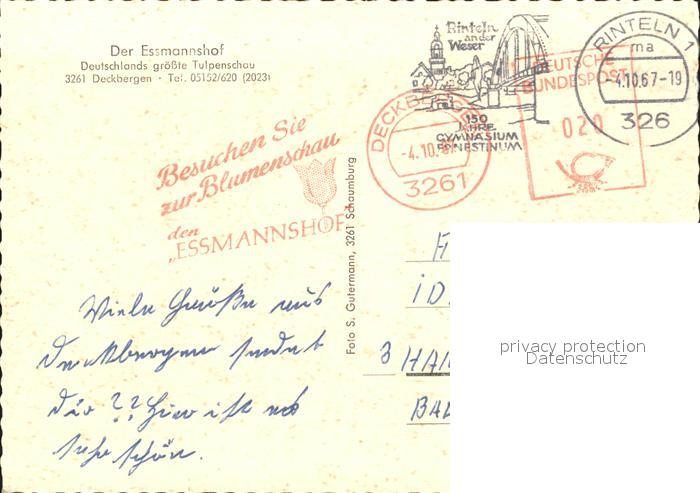 Der Essmannshof
Deutschlands größte Tulpenschau
3261 Deckbergen · Tel. 05152/620 (2023)
Rinteln
an der
Weser
150
JAHRE
GYMNASIUM
ERNESTINUM
RINTELN 1
ma
-4.10.67-19
326
DEUTSCHE
BUNDESPOST
020
DECKBERGEN
-4.10.67
3261
Besuchen Sie
zur Blumenschau
den
„ESSMANNSHOF
Foto S. Gutermann, 3261 Schaumburg
Viele Grüße aus
Deckbergen sendet
Dir ?? Hier ist es
sehr schön.
iD
3 HAN
BAD
privacy protection
Datenschutz